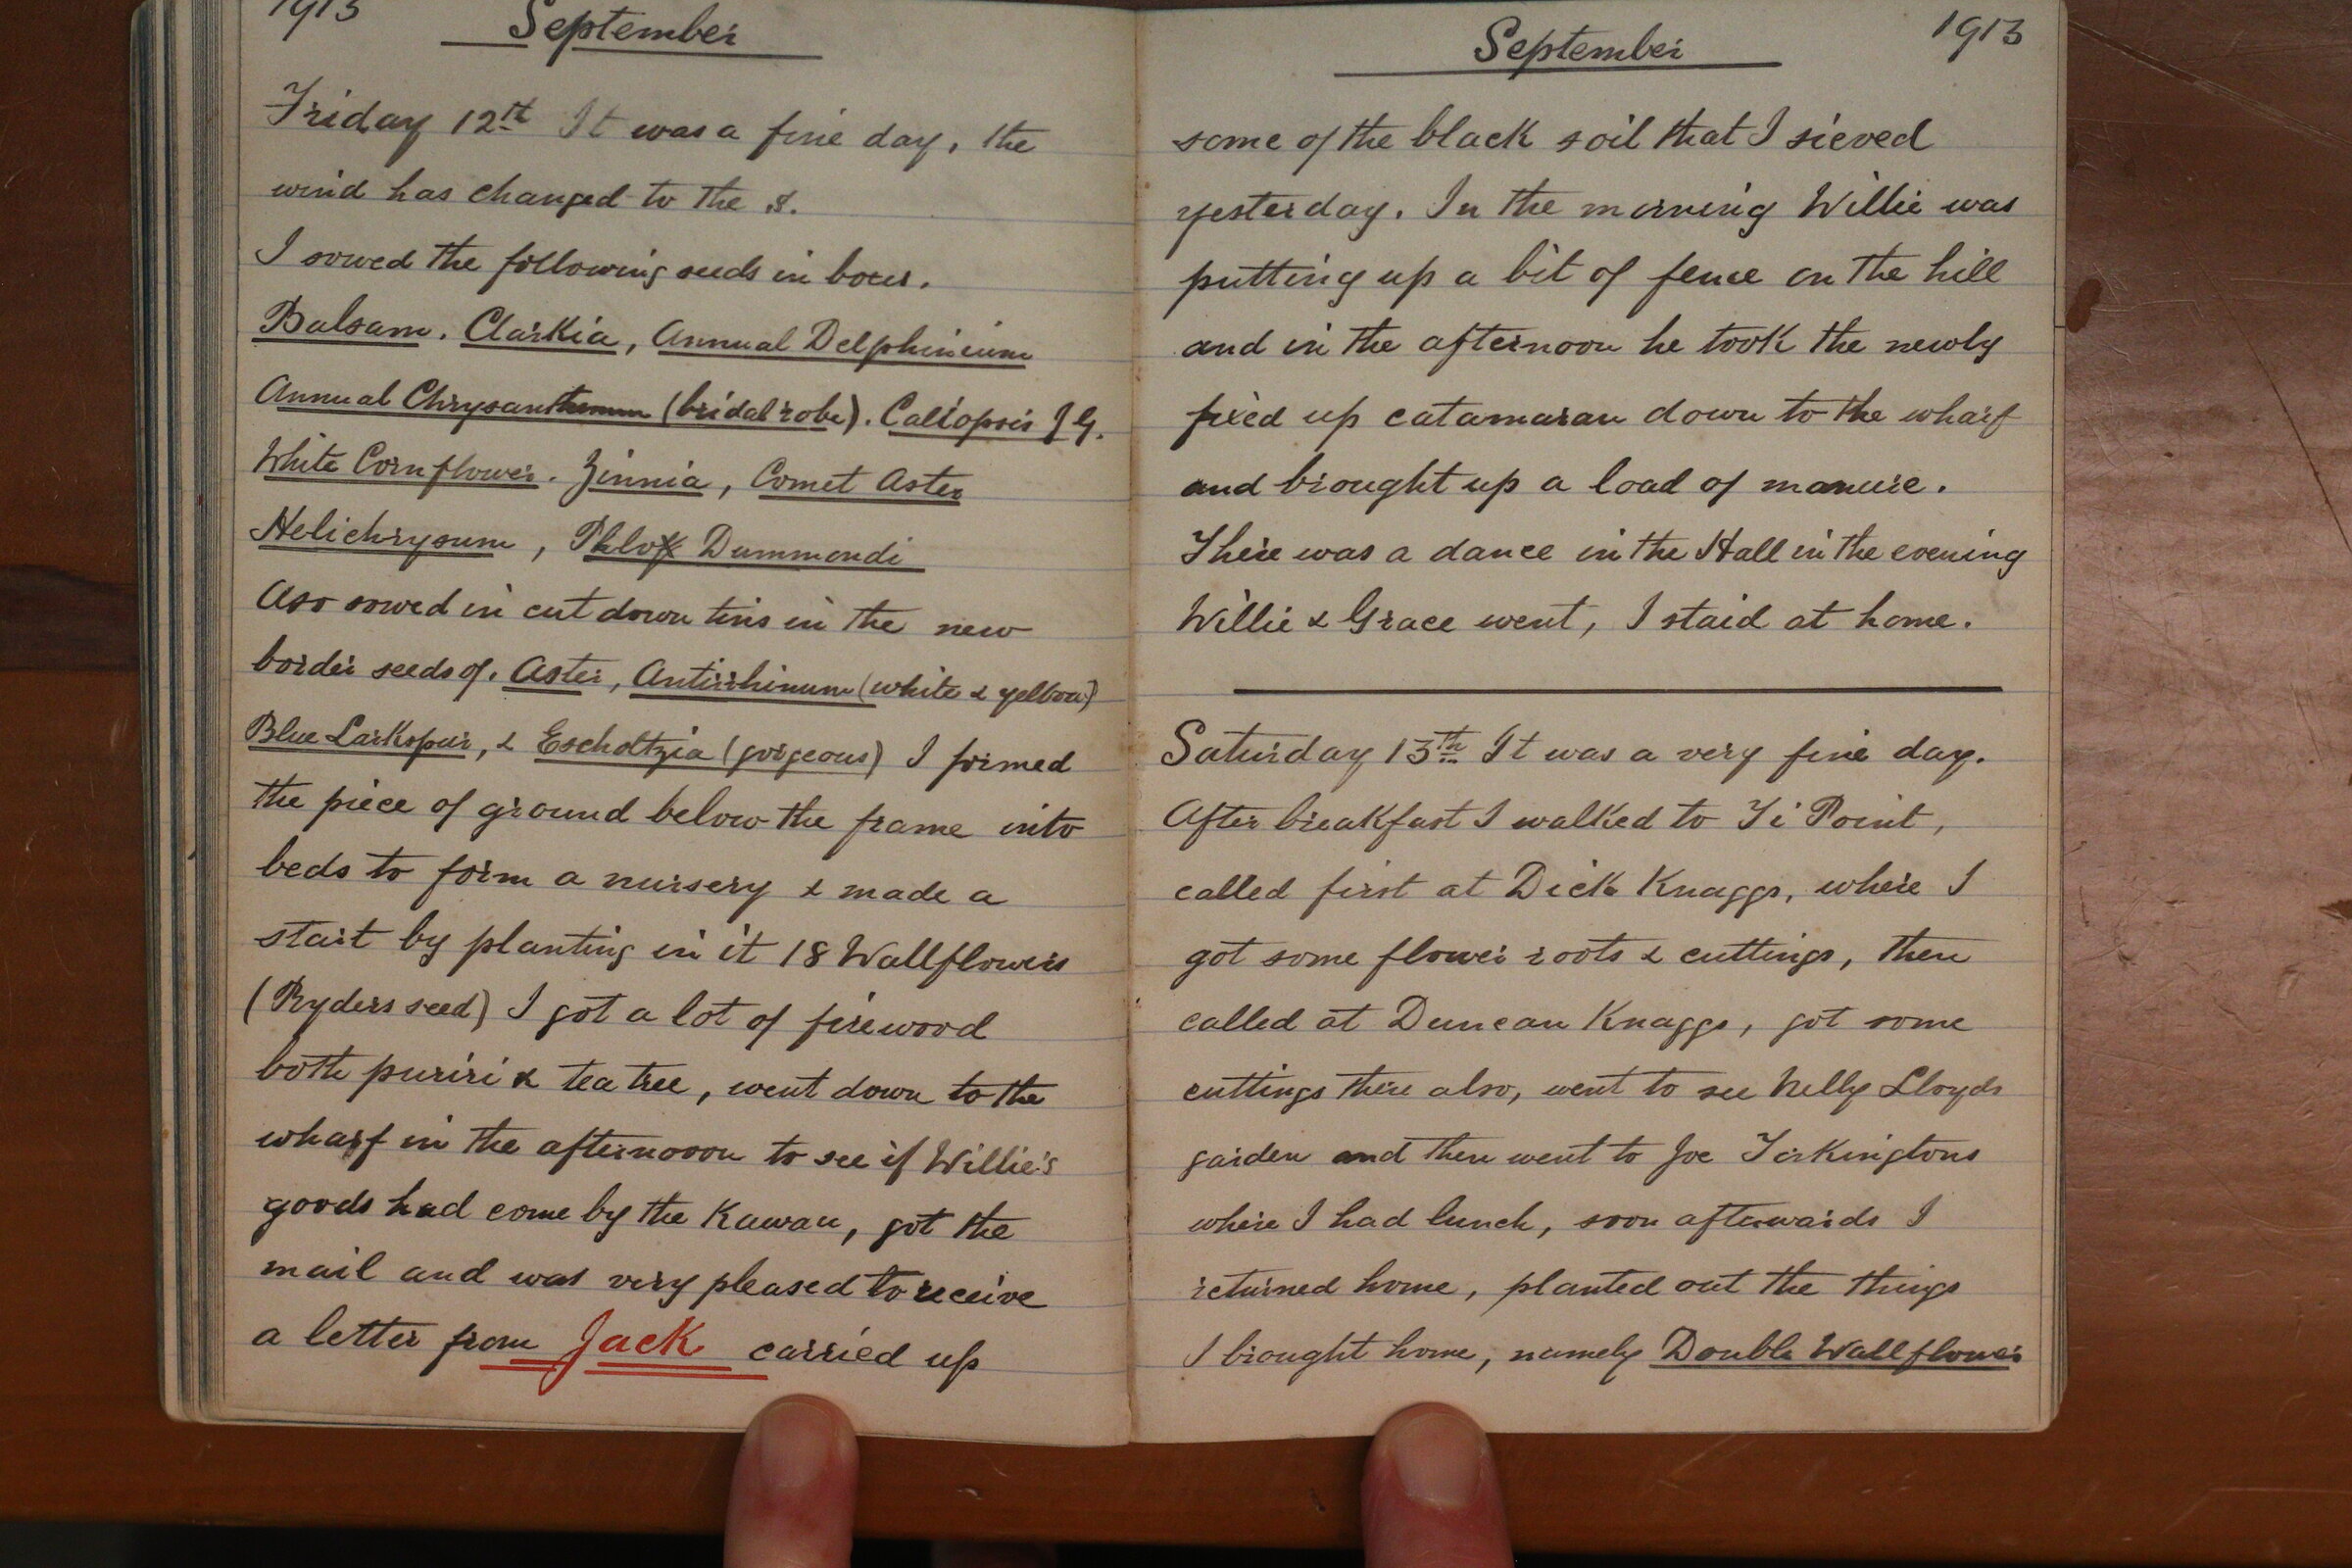 1913
September
Friday 12th It was a fine day, the
wind has changed to the S.
I sowed the following seeds in boxes.
Balsam. Clarkia, Annual Delphinium
Annual Chrysanthemum (bridal robe). Caliopsis J G.
White Cornflower. Zinnia, Comet Aster
Helichrysum, Phlox Dummondi
Aso sowed in cut down tins in the new
border seeds of. Aster, Antirrhinum (white & yellow)
Blue Larkspur, & Escholtzia (gorgeous) I formed
the piece of ground below the frame into
beds to form a nursery & made a
start by planting in it 18 Wallflowers
(Ryders seed) I got a lot of firewood
both puriri & tea tree, went down to the
wharf in the afternooon to see if Willie's
goods had come by the Kawau, got the
mail and was very pleased to receive
a letter from Jack carried up
September
1913
some of the black soil that I sieved
yesterday. In the morning Willie was
putting up a bit of fence on the hill
and in the afternoon he took the newly
fixed up catamaran down to the wharf
and brought up a load of manure.
There was a dance in the Hall in the evening
Willie & Grace went, I staid at home.
Saturday 13th It was a very fine day.
After breakfast I walked to Ti Point,
called first at Dick Knaggs, where I
got some flower roots & cuttings, then
called at Duncan Knaggs, got some
cuttings there also, went to see Nelly Lloyds
garden and then went to Joe Torkingtons
where I had lunch, soon afterwards I
returned home, planted out the things
I brought home, namely Double Wallflower